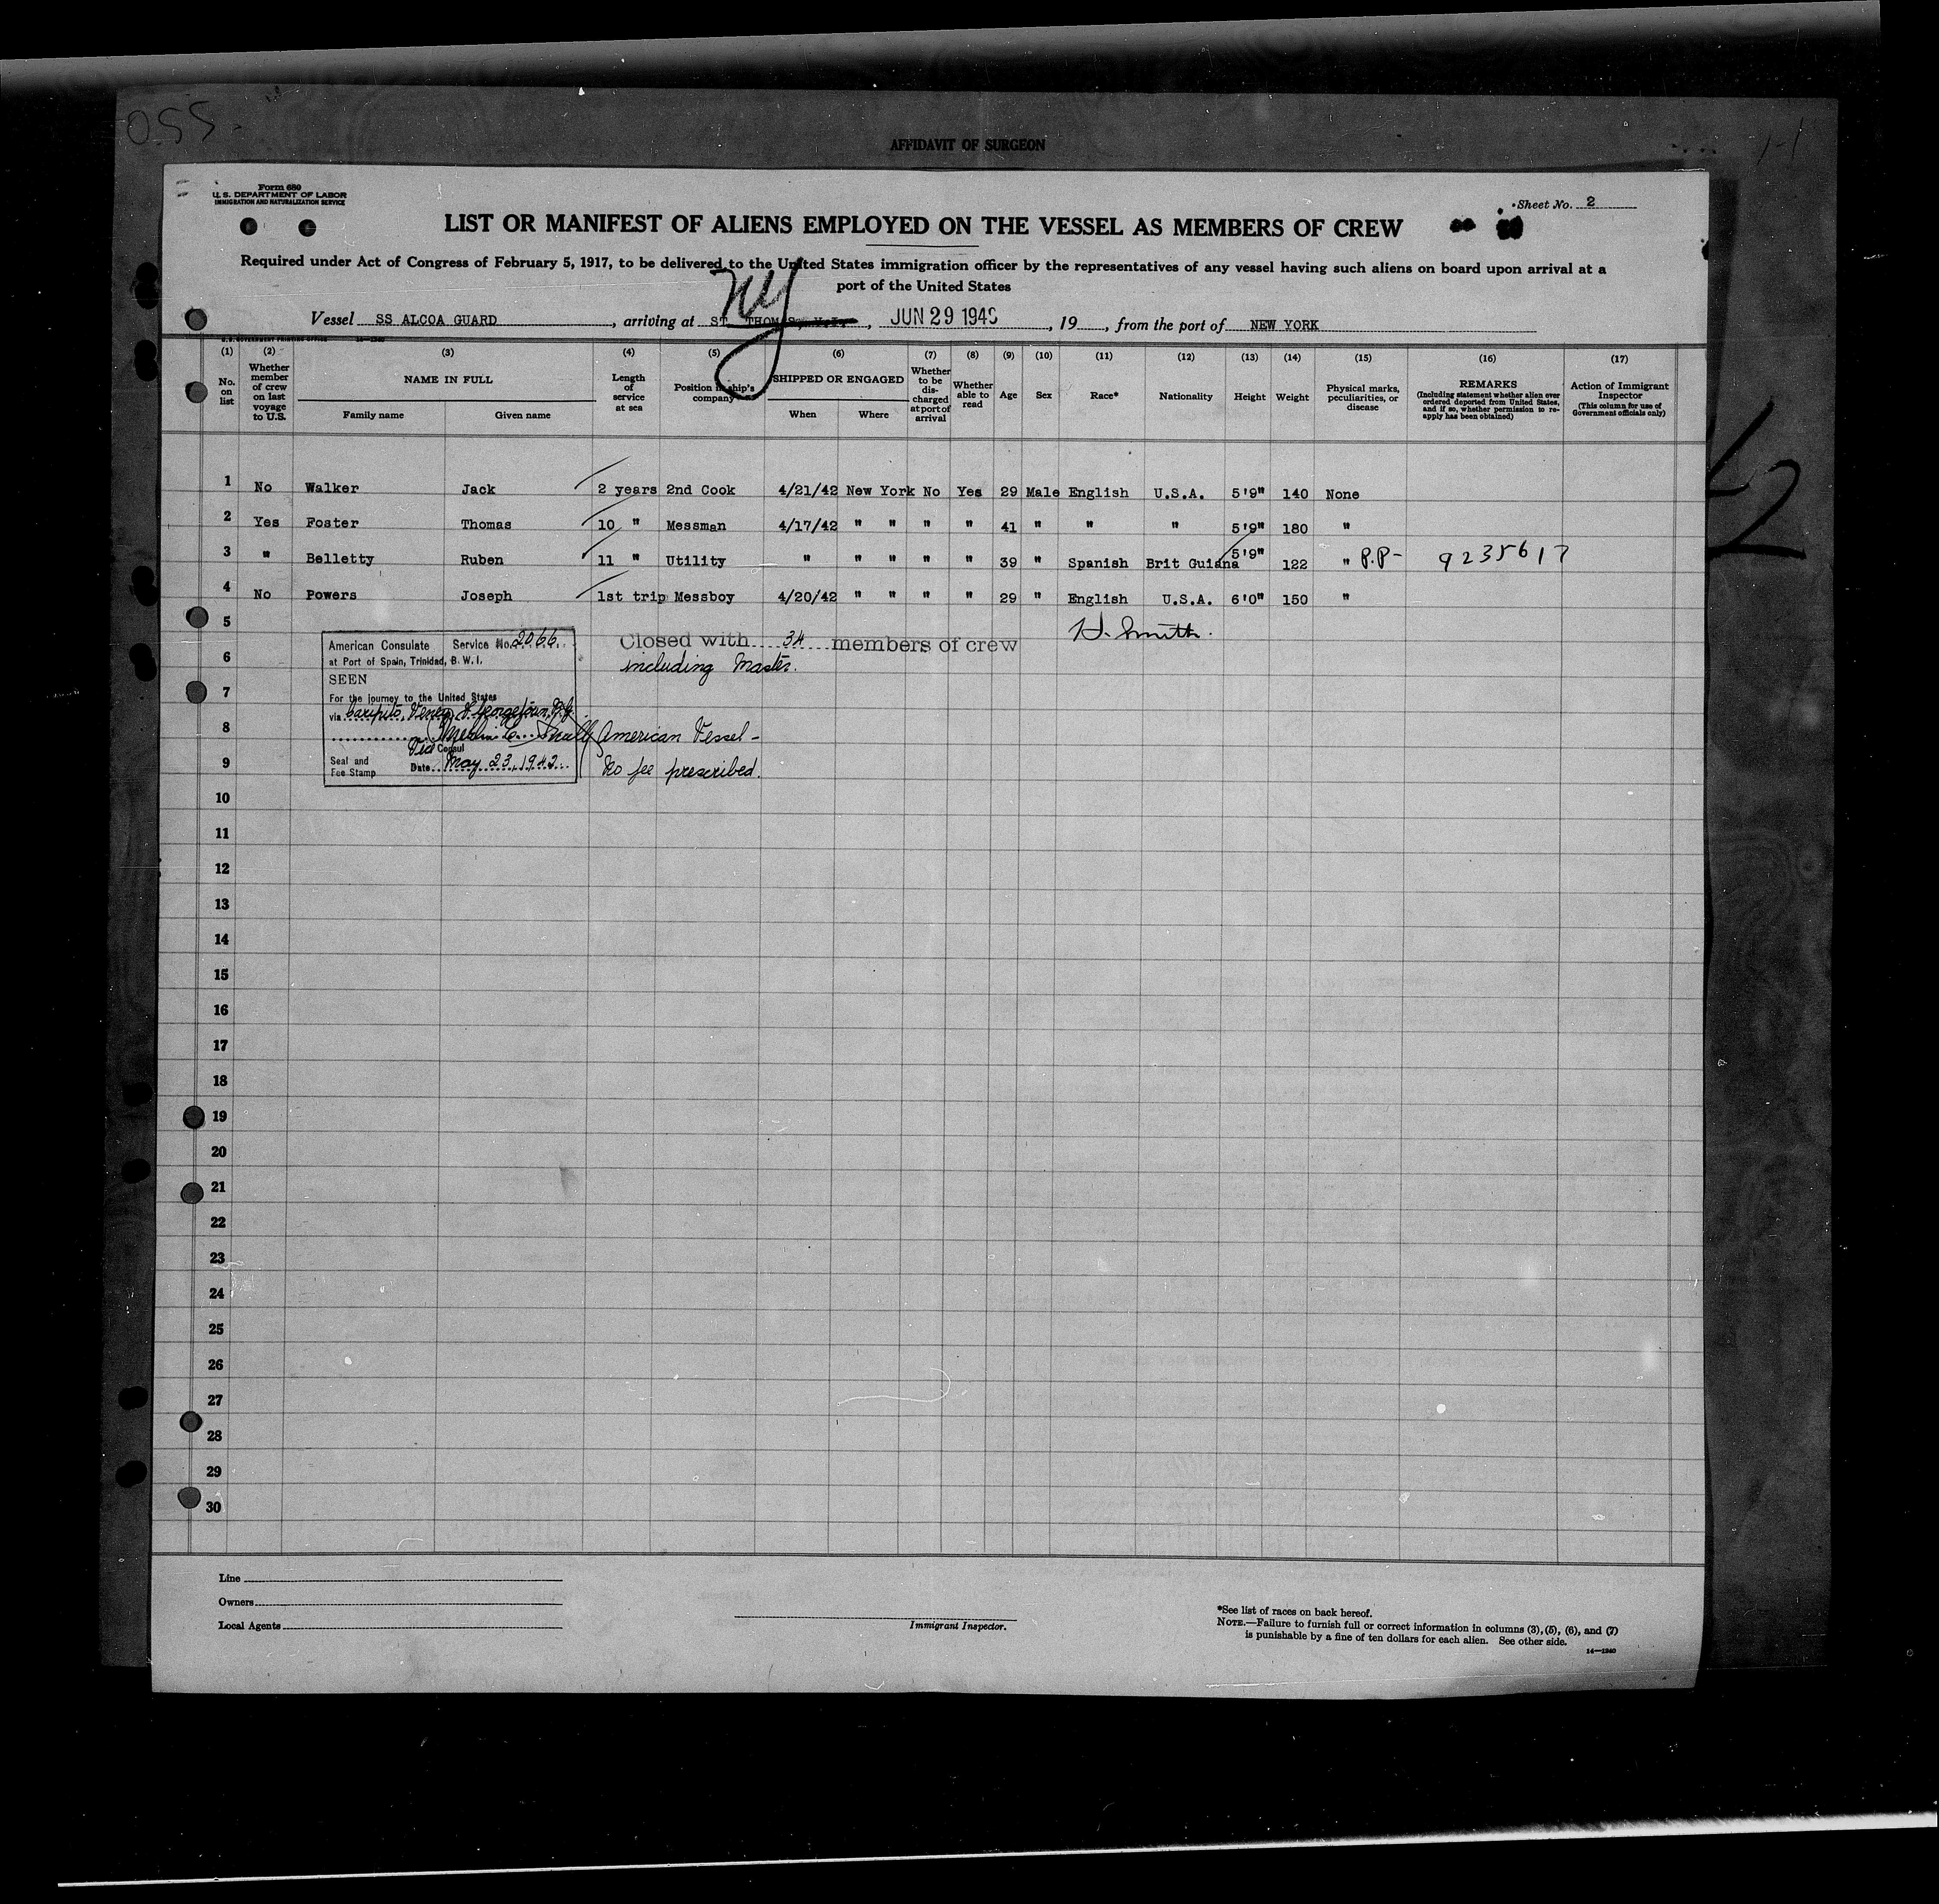 OSS.
AFFIDAVIT OF SURGEON
Form 680
U. S. DEPARTMENT OF LABOR
IMMIGRATION AND NATURALIZATION SERVICE
Sheet No. 2
LIST OR MANIFEST OF ALIENS EMPLOYED ON THE VESSEL AS MEMBERS OF CREW
Required under Act of Congress of February 5, 1917, to be delivered to the United States immigration officer by the representatives of any vessel having such aliens on board upon arrival at a
port of the United States
NY
Vessel SS ALCOA GUARD, arriving at ST. THOMAS, V.I., JUN 29 194, 19, from the port of NEW YORK
U. S. GOVERNMENT PRINTING OFFICE 14—1940
(1) (2) (3) (4) (5) (6) (7) (8) (9) (10) (11) (12) (13) (14) (15) (16) (17)
No. on list
Whether member of crew on last voyage to U.S.
NAME IN FULL
Family name Given name
Length of service at sea
Position in ship's company
SHIPPED OR ENGAGED
When Where
Whether to be discharged at port of arrival
Whether able to read
Age Sex Race* Nationality Height Weight
Physical marks, peculiarities, or disease
REMARKS
(Including statement whether alien ever ordered deported from United States, and if so, whether permission to reapply has been obtained)
Action of Immigrant Inspector
(This column for use of Government officials only)
1 No Walker Jack 2 years 2nd Cook 4/21/42 New York No Yes 29 Male English U.S.A. 5'9" 140 None
2 Yes Foster Thomas 10 " Messman 4/17/42 " " " " 41 " " " 5'9" 180 "
3 " Belletty Ruben 11 " Utility " " " " " 39 " Spanish Brit Guiana 5'9" 122 " P.P- 9235617
4 No Powers Joseph 1st trip Messboy 4/20/42 " " " " 29 " English U.S.A. 6'0" 150 "
5
H. Smith.
American Consulate Service No. 2066
at Port of Spain, Trinidad, B. W. I.
SEEN
For the journey to the United States
via Caripito, Venez, & Georgetown, B.G.
Vice Consul
Seal and Fee Stamp Date May 23, 1942
Closed with 34 members of crew
including Master.
American Vessel -
No fee prescribed.
6
7
8
9
10
11
12
13
14
15
16
17
18
19
20
21
22
23
24
25
26
27
28
29
30
Line
Owners
Local Agents
Immigrant Inspector.
*See list of races on back hereof.
NOTE.—Failure to furnish full or correct information in columns (3), (5), (6), and (7)
is punishable by a fine of ten dollars for each alien. See other side.
14—1940